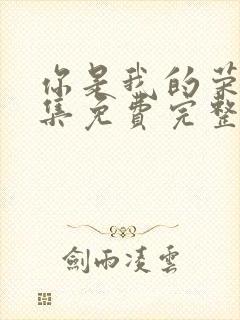 你是我的荣
集免费完整
劍雨凌雲